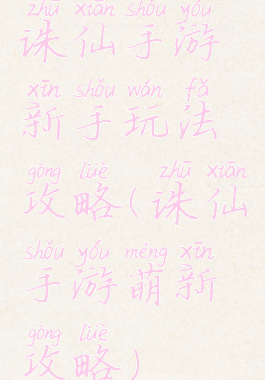 zhū xiān shǒu yóu
诛仙手游
xīn shǒu wán fǎ
新手玩法
gōng lüè zhū xiān
攻略(诛仙
shǒu yóu méng xīn
手游萌新
gōng lüè
攻略)